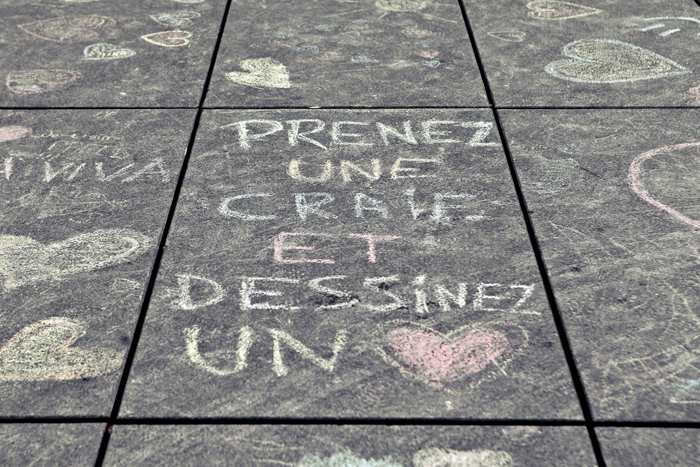 PRENEZ
UNE
CRAIE
ET
DESSiNEZ
UN
VIVA